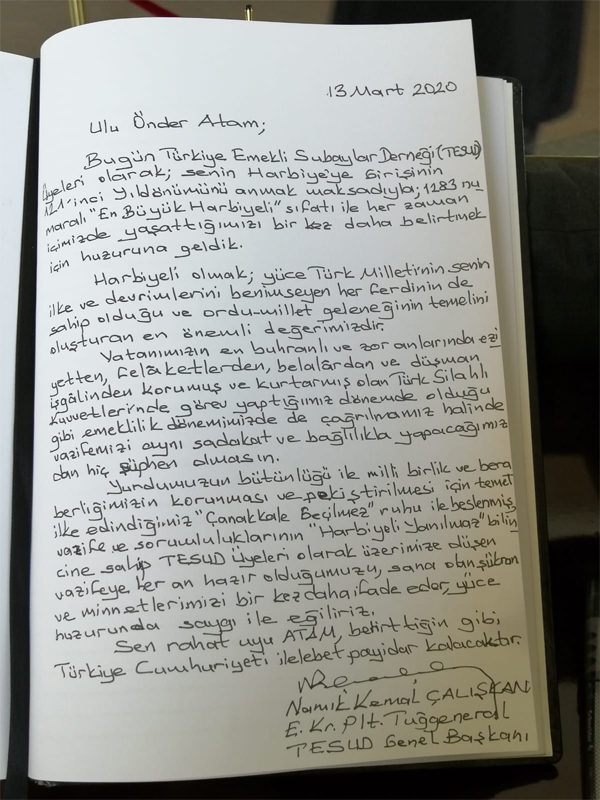 13 Mart 2020
Ulu Önder Atam;
Bugün Türkiye Emekli Subaylar Derneği (TESUD)
üyeleri olarak; senin Harbiye'ye Girişinin
121'inci Yıldönümünü anmak maksadıyla; 1283 nu
maralı "En Büyük Harbiyeli" sıfatı ile her zaman
içimizde yaşattığımızı bir kez daha belirtmek
için huzuruna geldik.
Harbiyeli olmak; yüce Türk Milleti'nin senin
ilke ve devrimlerini benimseyen her ferdinin de
sahip olduğu ve ordu-millet geleneğinin temelini
oluşturan en önemli değerimizdir.
Vatanımızın en buhranlı ve zor anlarında ezi
yetten, felâketlerden, belalârdan ve düşman
işgâlinden korumuş ve kurtarmış olan Türk Silahlı
Kuvvetleri'nde görev yaptığımız dönemde olduğu
gibi emeklilik dönemimizde de çağrılmamız halinde
vazifemizi aynı sadakat ve bağlılıkla yapacağımız
dan hiç şüphen olmasın.
Yurdumuzun bütünlüğü ile milli birlik ve bera
berliğimizin korunması ve pekiştirilmesi için temel
ilke edindiğimiz "Çanakkale Geçilmez" ruhu ile beslenmiş,
vazife ve sorumluluklarının "Harbiyeli Yanılmaz" bilin
cine sahip TESUD Üyeleri olarak üzerimize düşen
vazifeye her an hazır olduğumuzu, sana olan şükran
ve minnetlerimizi bir kez daha ifade eder, yüce
huzurunda saygı ile eğiliriz.
Sen rahat uyu ATAM, belirttiğin gibi,
Türkiye Cumhuriyeti ilelebet payidar kalacaktır.
Namık Kemal ÇALIŞKAN
E. Kr. Plt. Tuğgeneral
TESUD Genel Başkanı